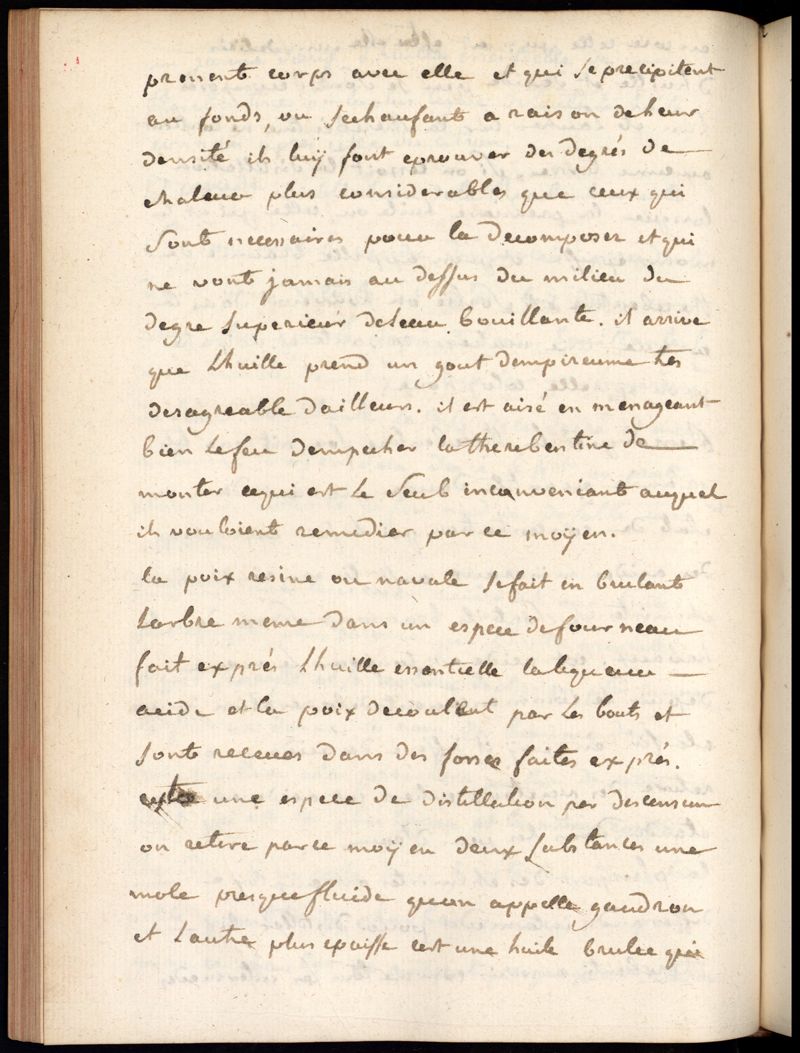 prennent corps avec elle et qui se precipitent
au fonds, ou sechaufant a raison de leur
densité ils luÿ font eprouver des degrés de
chaleur plus considerables que ceux qui
sont necessaires pour la decomposer et qui
ne vont jamais au dessus du milieu du
degre superieur deleau bouillante. il arrive
que Lhuille prend un gout dempireume tres
desagreable dailleurs. il est aisé en menageant
bien Le feu dempecher latherebentine de
monter cequi est Le seul inconveniant auquel
ils vouloient remedier par ce moÿen.
la poix resine ou navale se fait en brulant
Larbre meme dans un espece de fourneau
fait exprés Lhuille essentielle laliqueur
acide et la poix decoulent par Les bouts et
sont receues dans des fosses faites exprés.
une espece de distillation per descensum
on retire par ce moÿen deux substances une
mole presque fluide quon appelle gaudron
et Lautre plus epaisse cest une huile brulee qui